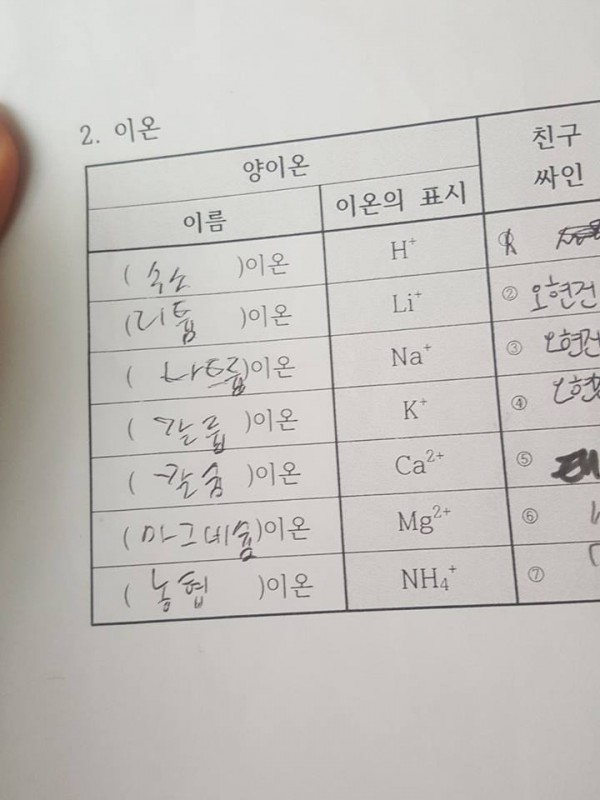 2. 이온
양이온 친구 싸인
이름 이온의 표시
( 수소 )이온 H⁺ ①
(리튬 )이온 Li⁺ ② 오현건
( 나트륨)이온 Na⁺ ③ 오현건
( 칼륨 )이온 K⁺ ④
( 칼슘 )이온 Ca²⁺ ⑤
(마그네슘)이온 Mg²⁺ ⑥
( 농협 )이온 NH₄⁺ ⑦